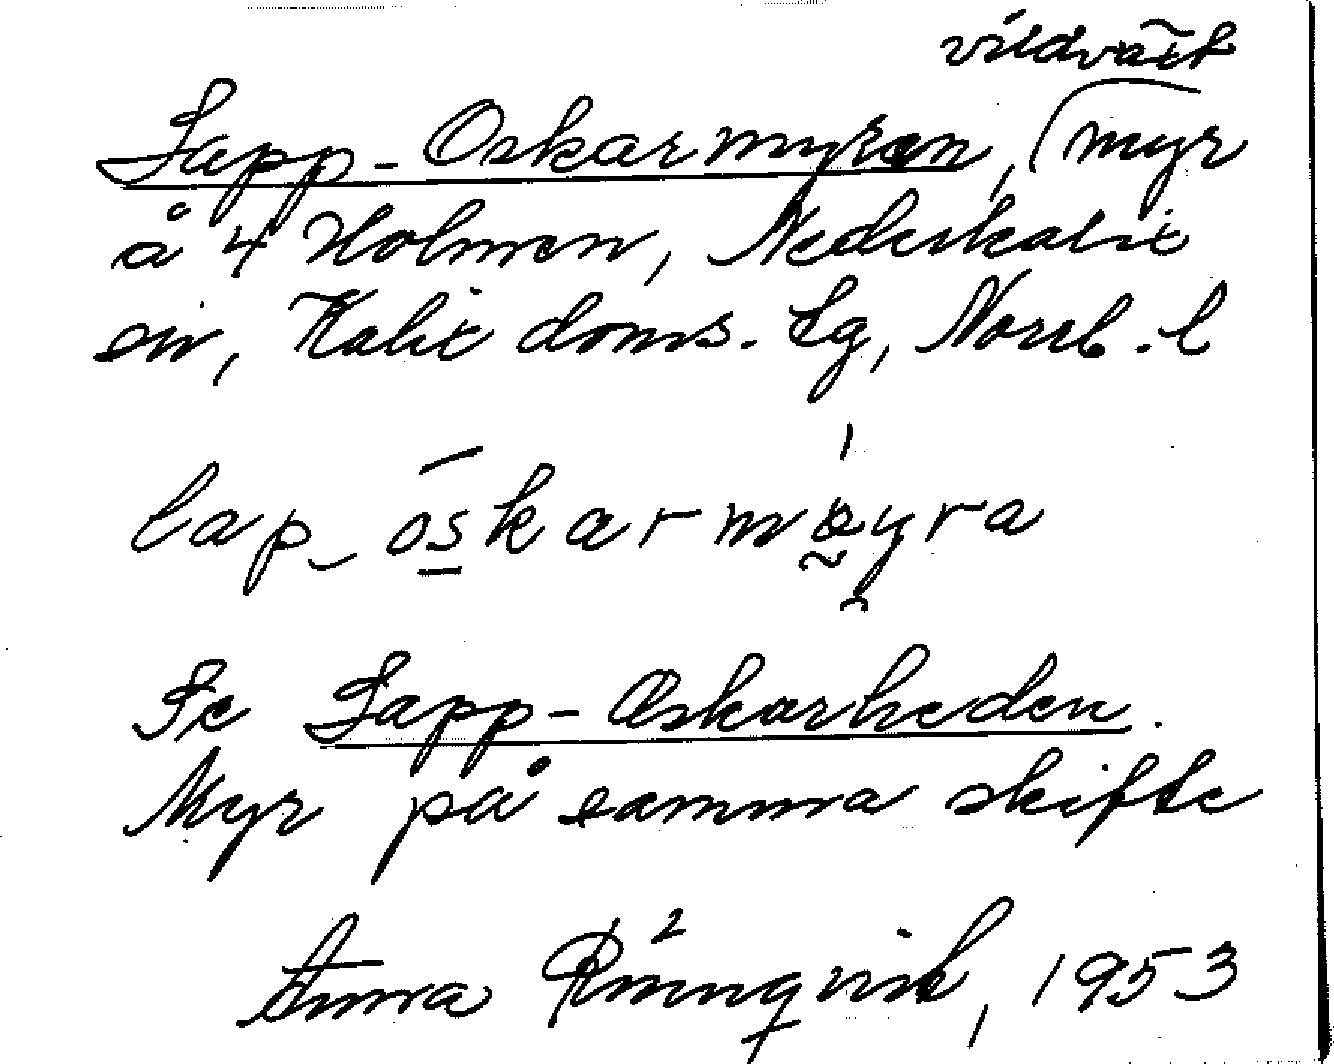 vildvält
Lapp-Oskarmyran, myr
å 4 Holmen, Nederkalix
sn, Kalix doms. tg, Norrb. l
lap-oskarmøyra
Se Lapp-Oskarheden.
Myr på samma skifte
Anna Rönnqvist, 1953